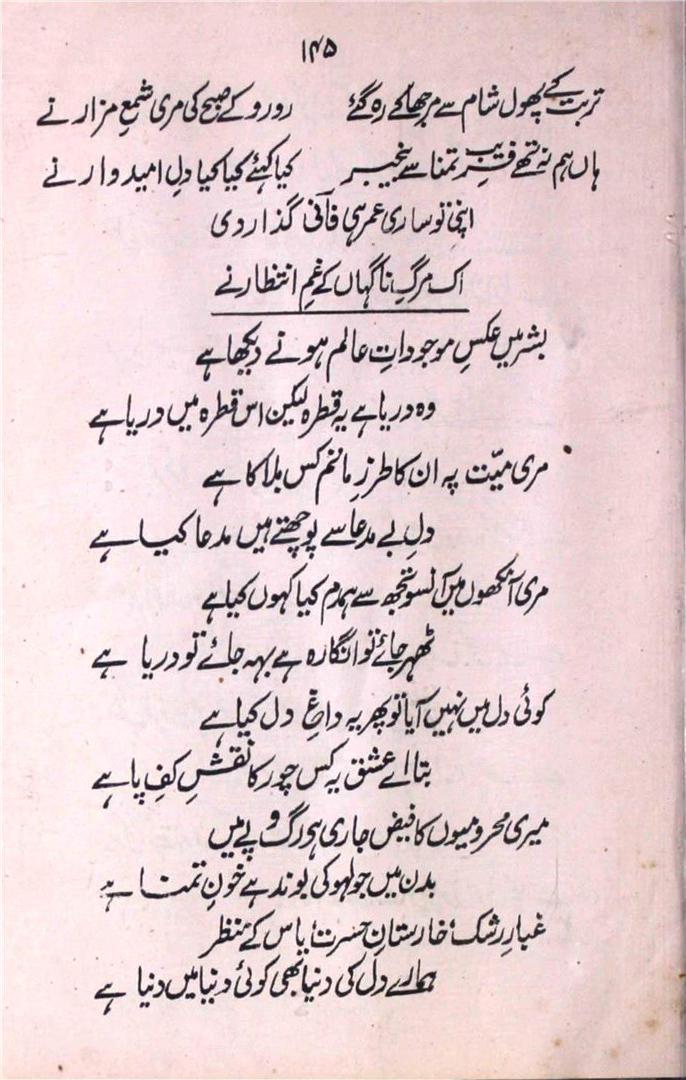 ۱۴۵
تربت کے پھول شام سے مرجھا کے رہ گئے رو رو کے صبح کی مری شمعِ مزار نے
ہاں ہم نہ تھے فریبِ تمنا سے بیخبر کیا کہئے کیا کیا دلِ امیدوار نے
اپنی تو ساری عمر ہی فانی گذار دی
اک مرگِ ناگہاں کے غمِ انتظار نے
بشر میں عکسِ موجوداتِ عالم ہم نے دیکھا ہے
وہ دریا ہے یہ قطرہ لیکن اس قطرہ میں دریا ہے
مری میّت پہ ان کا طرزِ ماتم کس بلا کا ہے
دلِ بے مدعا سے پوچھتے ہیں مدعا کیا ہے
مری آنکھوں میں آنسو تجھ سے ہمدم کیا کہوں کیا ہے
ٹھہر جائے تو انگارہ ہے بہہ جائے تو دریا ہے
کوئی دل میں نہیں آیا تو پھر یہ داغِ دل کیا ہے
بتا اے عشق یہ کس چور کا نقشِ کفِ پا ہے
میری محرومیوں کا فیض جاری ہو رگ و پے میں
بدن میں جو لہو کی بوند ہے خونِ تمنا ہے
غبارِ رشک، خارستانِ حسرت، یاس کے منظر
ہمارے دل کی دنیا بھی کوئی دنیا میں دنیا ہے